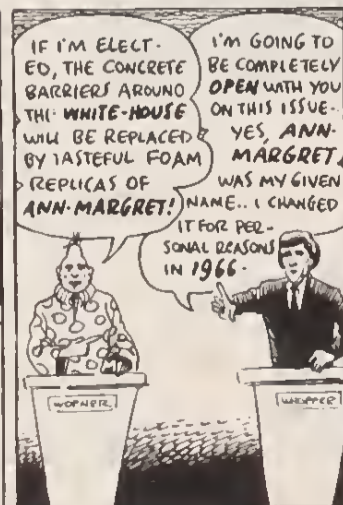 IF I'M ELECT-
ED, THE CONCRETE
BARRIERS AROUND
THE WHITE-HOUSE
WILL BE REPLACED
BY TASTEFUL FOAM
REPLICAS OF
ANN-MARGRET!
I'M GOING TO
BE COMPLETELY
OPEN WITH YOU
ON THIS ISSUE..
YES, ANN-
MARGRET
WAS MY GIVEN
NAME.. I CHANGED
IT FOR PER-
SONAL REASONS
IN 1966.
WOPNER
WHOPPER